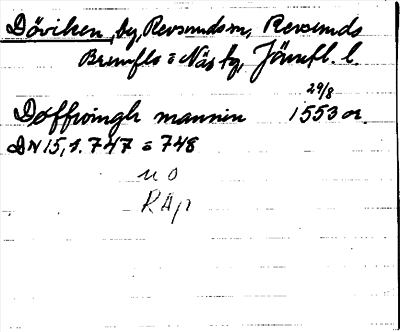 Döviken, by, Revsunds sn, Revsunds
Brunflo o Näs tg, Jämtl. l.
29/8
Døffwingh mannin 1553 or.
DN 15, s. 747 o 748